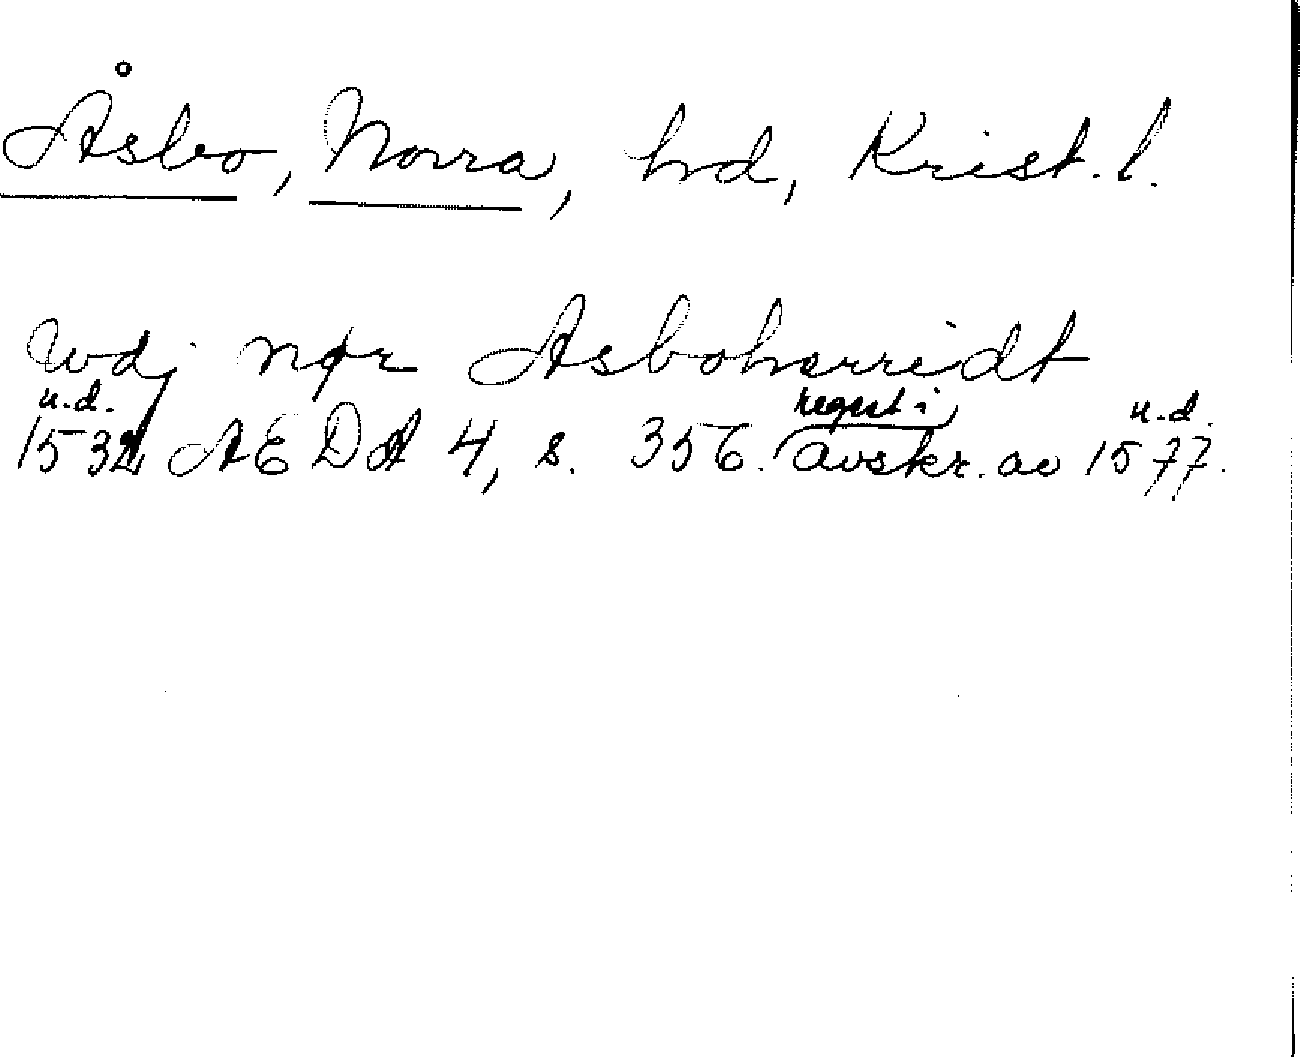 Åsbo, Norra, hd, Krist. l.
wdj nør Asboherridt
u.d. regest i u.d.
1532 AEDA 4, s. 356. avskr. av 1577.